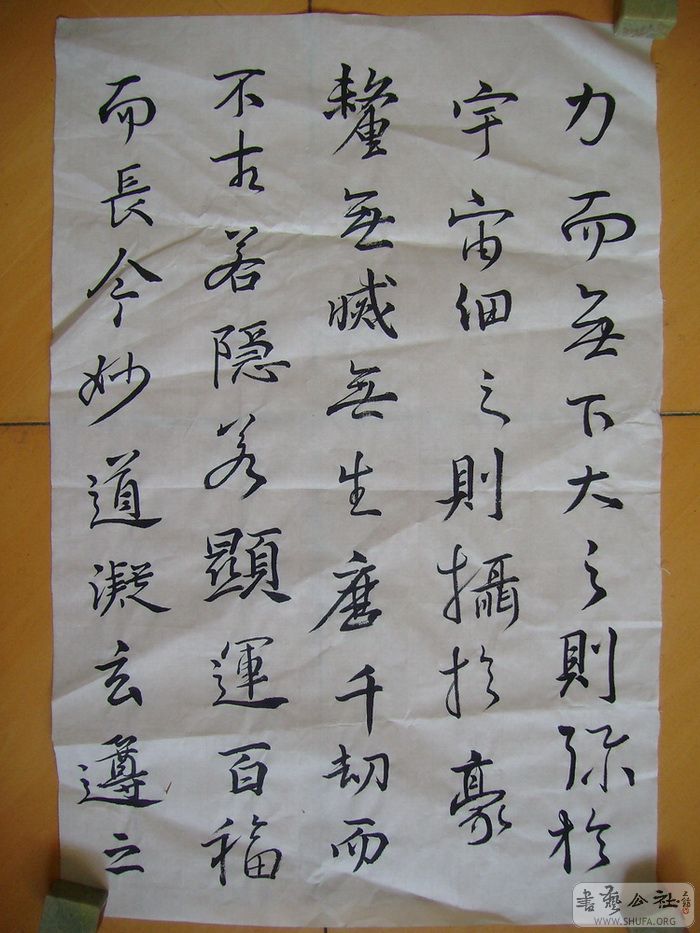 力而無下大之則弥於
宇宙細之則攝於豪
釐無滅無生歷千劫而
不古若隱若顯運百福
而長今妙道凝玄遵之
書藝公社
WWW.SHUFA.ORG